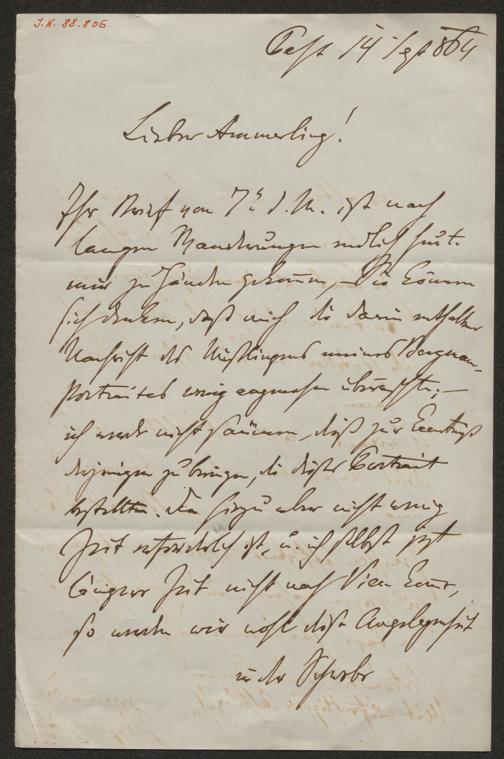 I.N. 88.806
Pest 14 Sept 864
Lieber Amerling!
Ihr Brief vom 7t d. M. ist nach
langen Wanderungen endlich heut
mir zu Händen gekommen, – Sie können
sich denken, daß mich die darin enthaltene
Nachricht des Mißlingens meines
Portraites wenig angenehm überraschte; –
ich werde nicht säumen, dieß zur Kenntniß
derjenigen zu bringen, die dieses Portrait
bestellten. Da hiezu aber nicht wenig
Zeit erforderlich ist, u. ich selbst jetzt
längere Zeit nicht nach Wien komme,
so werden wir wohl diese Angelegenheit
in der Schwebe